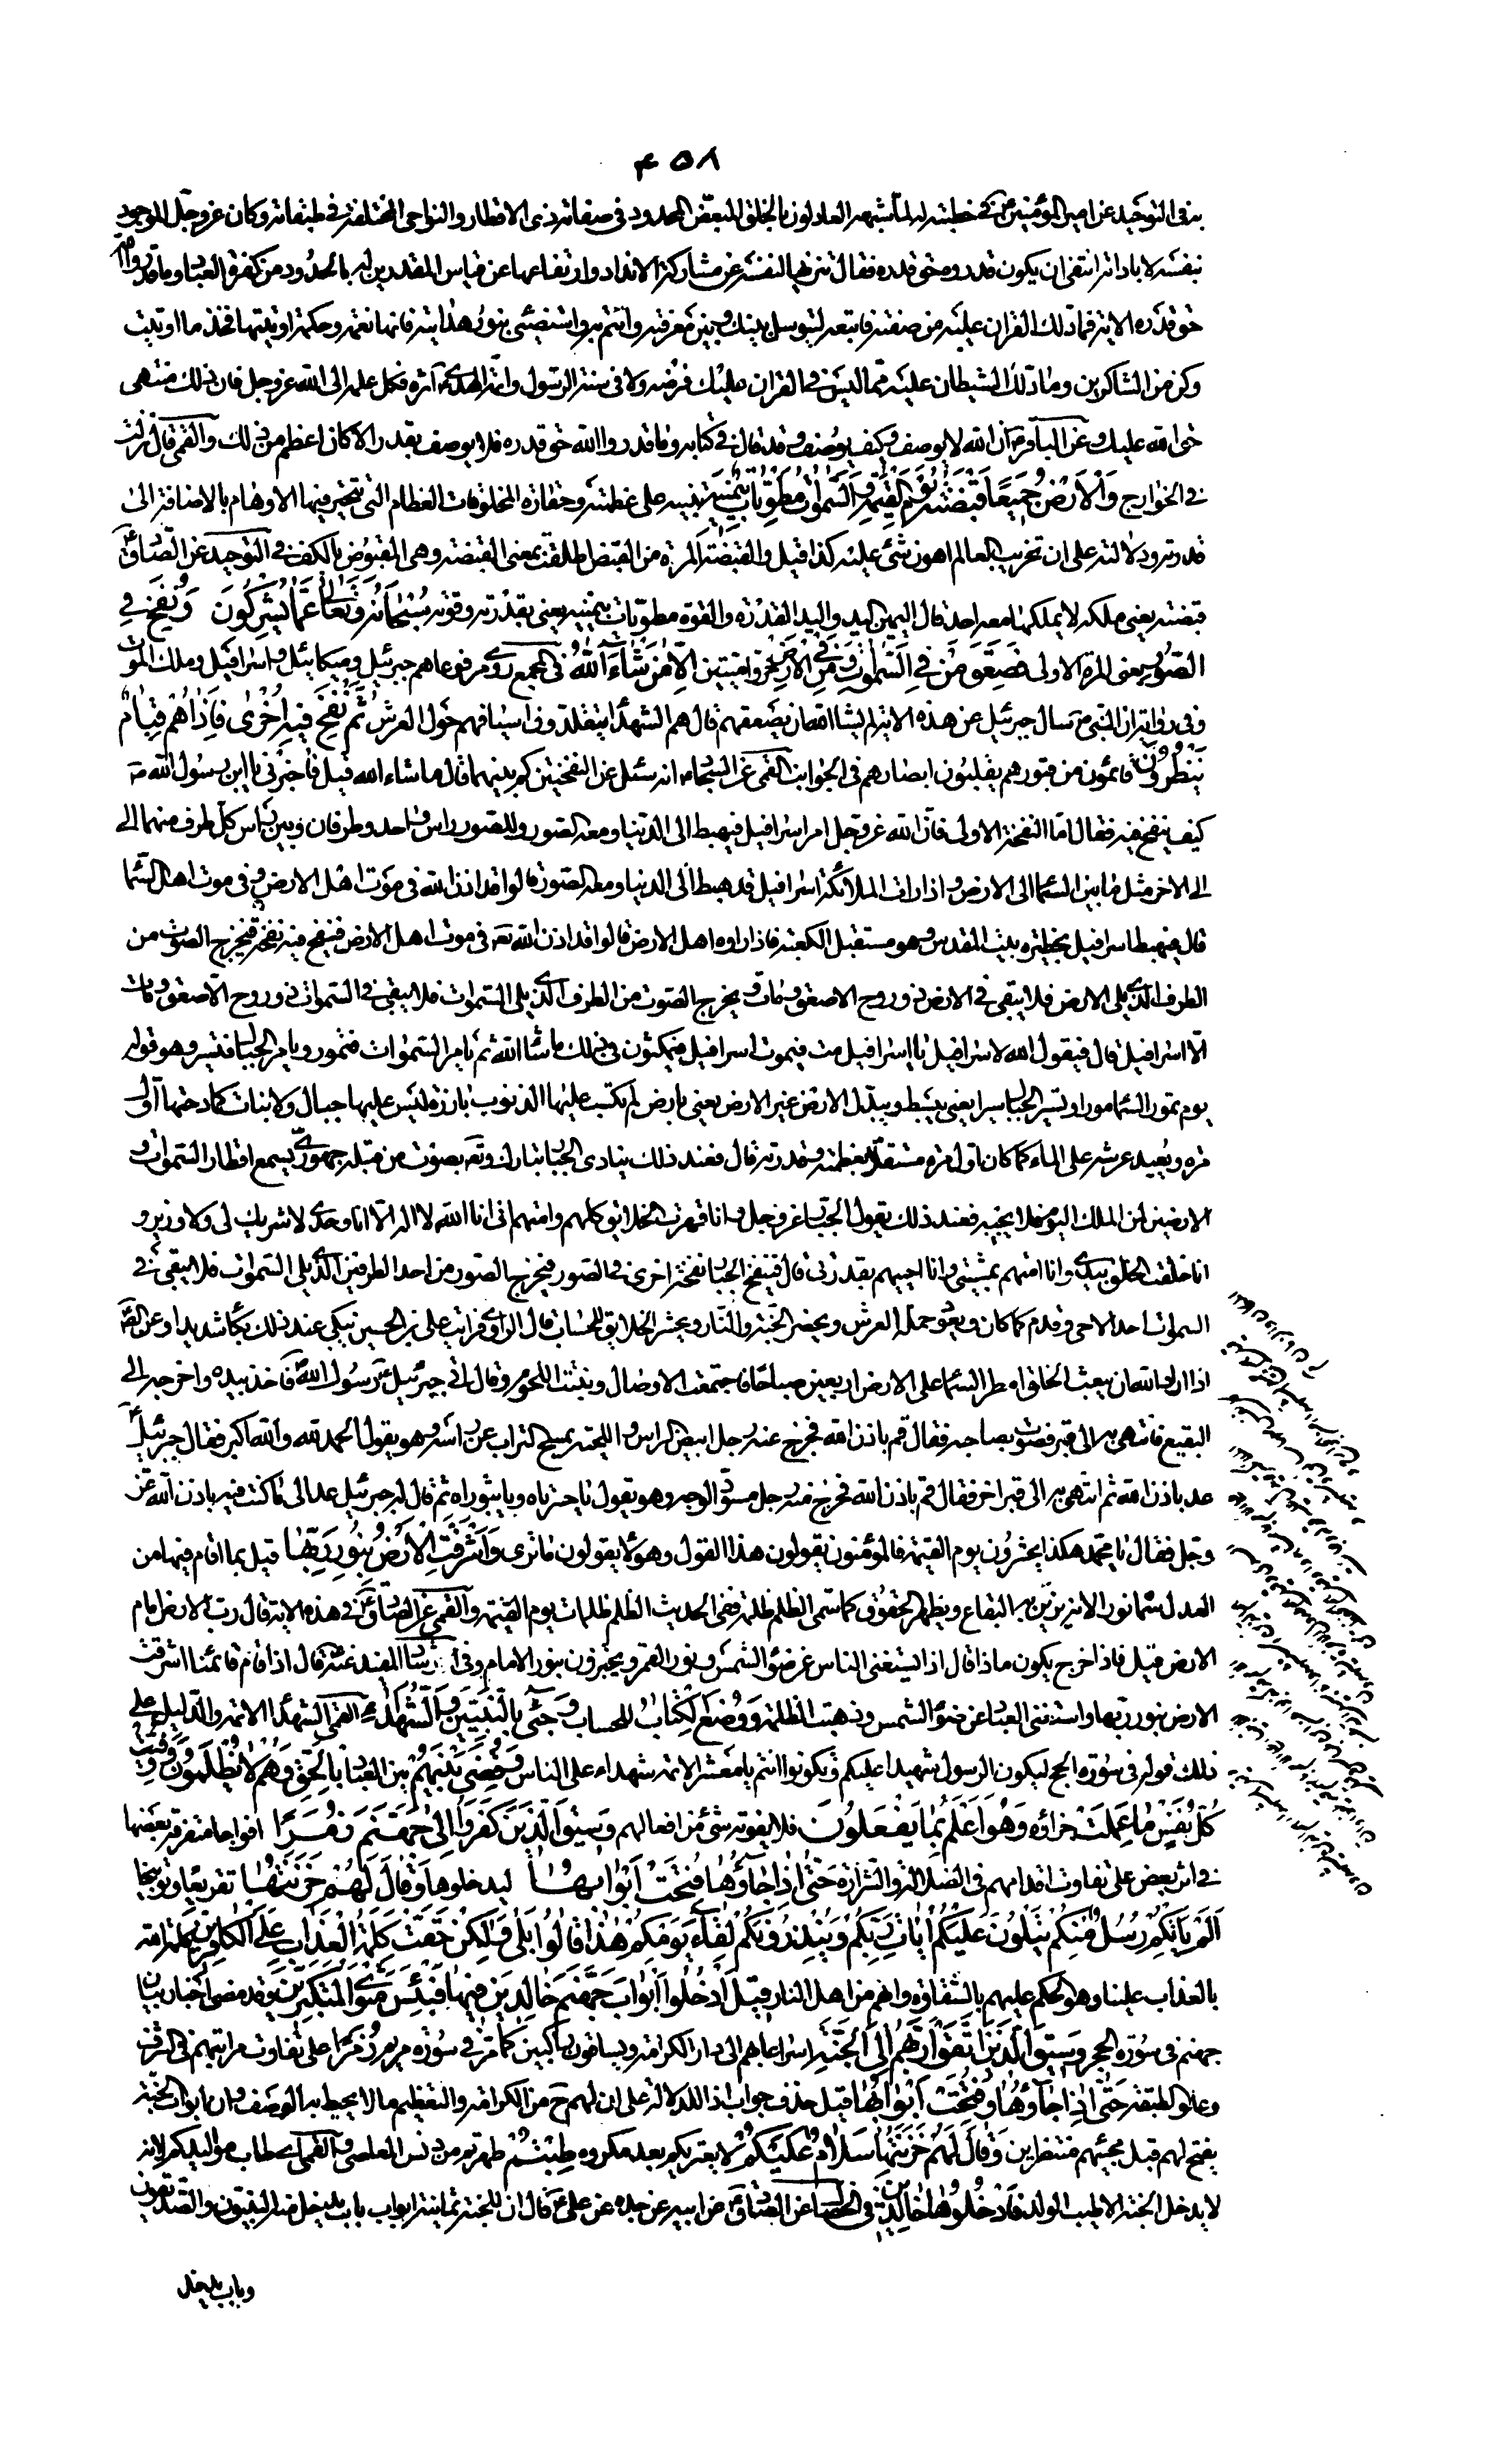 ٤٥٨
به في التوحيد عن امير المؤمنين ع في خطبته لما شبهه العادلون بالخلق المبعض المحدود في صفاته ذي الاقطار والنواحي المختلفة في طبقاته وكان عز وجل الموجود
بنفسه لا باداته انتفى ان يكون قدروه حق قدره فقال تنزيها لنفسه عن مشاركة الانداد وارتفاعها عن قياس المقدرين له بالحدود من كفرة العباد وما قدروا الله
حق قدره الاية فما دلك القران عليه من صفته فاتبعه ليتوسل بينك وبين معرفته وائتم به واستضئ بنور هدايته فانها نعمة وحكمة اوتيتها فخذ ما اوتيت
وكن من الشاكرين وما دلك الشيطان عليه مما ليس في القران عليك فرضه ولا في سنة الرسول وائمة الهدى اثره فكل علمه الى الله عز وجل فان ذلك منتهى
حق الله عليك وعن الباقر ع ان الله لا يوصف وكيف يوصف وقد قال في كتابه وما قدروا الله حق قدره فلا يوصف بقدر الا كان اعظم من ذلك والقمي قال نزلت
في الخوارج وَالْاَرْضُ جَمِيعًا قَبْضَتُهُ يَوْمَ الْقِيٰمَةِ وَالسَّمٰوَاتُ مَطْوِيَّاتٌ بِيَمِينِهِ تنبيه على عظمته وحقارة المخلوقات العظام التي تتحير فيها الاوهام بالاضافة الى
قدرته ودلالته على ان تخريب العالم اهون شئ عليه كذا قيل والقبضة المرة من القبض اطلقت بمعنى القبضة وهي المقبوض بالكف في التوحيد عن الصادق ع
قبضته يعني ملكه لا يملكها معه احد قال اليمين اليد واليد القدرة والقوة مطويات بيمينه يعني بقدرته وقوته سُبْحَانَهُ وَتَعَالٰى عَمَّا يُشْرِكُونَ وَنُفِخَ فِي
الصُّورِ يعني المرة الاولى فَصَعِقَ مَنْ فِي السَّمٰوَاتِ وَمَنْ فِي الْاَرْضِ خروا ميتين اِلَّا مَنْ شَاءَ اللّٰهُ في المجمع روي مرفوعا هم جبرئيل وميكائيل واسرافيل وملك الموت
وفي رواية ان النبي ص سال جبرئيل عن هذه الاية لم يشا الله ان يصعقهم قال هم الشهداء متقلدون اسيافهم حول العرش ثُمَّ نُفِخَ فِيهِ اُخْرٰى فَاِذَا هُمْ قِيَامٌ
يَنْظُرُونَ قائمون من قبورهم يقلبون ابصارهم في الجوانب القمي عن السجاد ع انه سئل عن النفختين كم بينهما قال ما شاء الله قيل فاخبرني يا ابن رسول الله ص
كيف ينفخ فيه فقال اما النفخة الاولى فان الله عز وجل امر اسرافيل فيهبط الى الدنيا ومعه الصور وللصور راس واحد وطرفان وبين راس كل طرف منهما الى
الى الاخر مثل ما بين السماء الى الارض واذا رات الملائكة اسرافيل قد هبط الى الدنيا ومعه الصور قالوا قد اذن الله في موت اهل الارض وفي موت اهل السماء
قال فيهبط اسرافيل بحظيرة بيت المقدس وهو مستقبل الكعبة فاذا راوه اهل الارض قالوا قد اذن الله تع في موت اهل الارض فينفخ فيه نفخة فيخرج الصوت من
الطرف الذي يلي الارض فلا يبقى في الارض ذو روح الا صعق ومات ويخرج الصوت من الطرف الذي يلي السموات فلا يبقى في السموات ذو روح الا صعق ومات
الا اسرافيل قال فيقول الله لاسرافيل يا اسرافيل مت فيموت اسرافيل فيمكثون في ذلك ما شاء الله ثم يامر السموات فتمور ويامر الجبال فتسير وهو قوله
يوم تمور السماء مورا وتسير الجبال سيرا يعني يبسط ويبدل الارض غير الارض يعني بارض لم يكتسب عليها الذنوب بارزة ليس عليها جبال ولا نبات كما دحيها اول
مرة ويعيد عرشه على الماء كما كان اول مرة مستقلا بعظمته وقدرته قال فعند ذلك ينادي الجبار تبارك وتع بصوت من قبله جهوري يسمع اقطار السموات و
الارضين لمن الملك اليوم فلا يجيبه فعند ذلك يقول الجبار عز وجل وانا قهرت الخلائق كلهم وامتهم اني انا الله لا اله الا انا وحدي لا شريك لي ولا وزير و
انا خلقت الخلق بيدي وانا امتهم بمشيتي وانا احييهم بقدرتي قال فينفخ الجبار نفخة اخرى في الصور فيخرج الصور من احد الطرفين الذي يلي السموات فلا يبقى في
السموات احد الا حي وقام كما كان ويعود حملة العرش ويحضر الجنة والنار ويحشر الخلايق للحساب قال الراوي فرايت علي بن الحسين يبكي عند ذلك بكاء شديدا وعن الصادق
اذا اراد الله ان يبعث الخلق امطر السماء على الارض اربعين صباحا فاجتمعت الاوصال ونبتت اللحوم وقال اتى جبرئيل رسول الله ص فاخذ بيده واخرجه الى
البقيع فانتهى به الى قبر فصوت بصاحبه فقال قم باذن الله فخرج عنه رجل ابيض الراس واللحية يمسح التراب عن راسه وهو يقول الحمد لله والله اكبر فقال جبرئيل
عد باذن الله ثم انتهى به الى قبر اخر فقال قم باذن الله فخرج منه رجل مسود الوجه وهو يقول يا حسرتاه ويا ثبوراه ثم قال له جبرئيل عد الى ما كنت فيه باذن الله عز
وجل فقال يا محمد هكذا يحشرون يوم القيمة فالمؤمنون يقولون هذا القول وهؤلاء يقولون ما ترى وَاَشْرَقَتِ الْاَرْضُ بِنُورِ رَبِّهَا قيل بما اقام فيها من
العدل سماه نورا لانه يزين به البقاع ويظهر الحقوق كما سمى الظلم ظلمة ففي الحديث الظلم ظلمات يوم القيمة والقمي عن الصادق ع في هذه الاية قال رب الارض امام
الارض قيل فاذا خرج يكون ماذا قال اذا يستغني الناس عن ضوء الشمس ونور القمر ويجتزون بنور الامام وفي ارشاد المفيد عنه ع قال اذا قام قائمنا اشرقت
الارض بنور ربها واستغنى العباد عن ضوء الشمس وذهبت الظلمة وَوُضِعَ الْكِتَابُ للحساب وَجِيءَ بِالنَّبِيِّينَ وَالشُّهَدَاءِ القمي الشهداء الائمة والدليل على
ذلك قوله في سورة الحج ليكون الرسول شهيدا عليكم وتكونوا انتم يا معشر الائمة شهداء على الناس وَقُضِيَ بَيْنَهُمْ بين العباد بِالْحَقِّ وَهُمْ لَا يُظْلَمُونَ وَوُفِّيَتْ
كُلُّ نَفْسٍ مَا عَمِلَتْ جزاؤه وَهُوَ اَعْلَمُ بِمَا يَفْعَلُونَ فلا يفوته شئ من افعالهم وَسِيقَ الَّذِينَ كَفَرُوا اِلٰى جَهَنَّمَ زُمَرًا افواجا متفرقة بعضها
في اثر بعض على تفاوت اقدامهم في الضلالة والشرارة حَتّٰى اِذَا جَاؤُهَا فُتِحَتْ اَبْوَابُهَا ليدخلوها وَقَالَ لَهُمْ خَزَنَتُهَا تقريعا وتوبيخا
اَلَمْ يَاْتِكُمْ رُسُلٌ مِنْكُمْ يَتْلُونَ عَلَيْكُمْ اٰيَاتِ رَبِّكُمْ وَيُنْذِرُونَكُمْ لِقَاءَ يَوْمِكُمْ هٰذَا قَالُوا بَلٰى وَلٰكِنْ حَقَّتْ كَلِمَةُ الْعَذَابِ عَلَى الْكَافِرِينَ كلمة الله
بالعذاب علينا وهو الحكم عليهم بالشقاوة وانهم من اهل النار قِيلَ ادْخُلُوا اَبْوَابَ جَهَنَّمَ خَالِدِينَ فِيهَا فَبِئْسَ مَثْوَى الْمُتَكَبِّرِينَ وقد مضى اخبار بيان
جهنم في سورة الحجر وَسِيقَ الَّذِينَ اتَّقَوْا رَبَّهُمْ اِلَى الْجَنَّةِ اسراعا بهم الى دار الكرامة ويساقون راكبين كما مر في سورة مريم زُمَرًا على تفاوت مراتبهم في الشرف
وعلو الطبقة حَتّٰى اِذَا جَاؤُهَا وَفُتِحَتْ اَبْوَابُهَا قيل حذف جواب اذا للدلالة على ان لهم ح من الكرامة والتعظيم ما لا يحيط به الوصف وان ابواب الجنة
يفتح لهم قبل مجيئهم منتظرين وَقَالَ لَهُمْ خَزَنَتُهَا سَلَامٌ عَلَيْكُمْ لا يعتريكم بعد مكروه طِبْتُمْ طهرتم من دنس المعاصي والقمي اي طاب مواليدكم لانه
لا يدخل الجنة الا طيب المولد فَادْخُلُوهَا خَالِدِينَ في الخصال عن الصادق ع عن ابيه عن جده عن علي ع قال ان للجنة ثمانية ابواب باب يدخل منه النبيون والصديقون
وباب يدخل